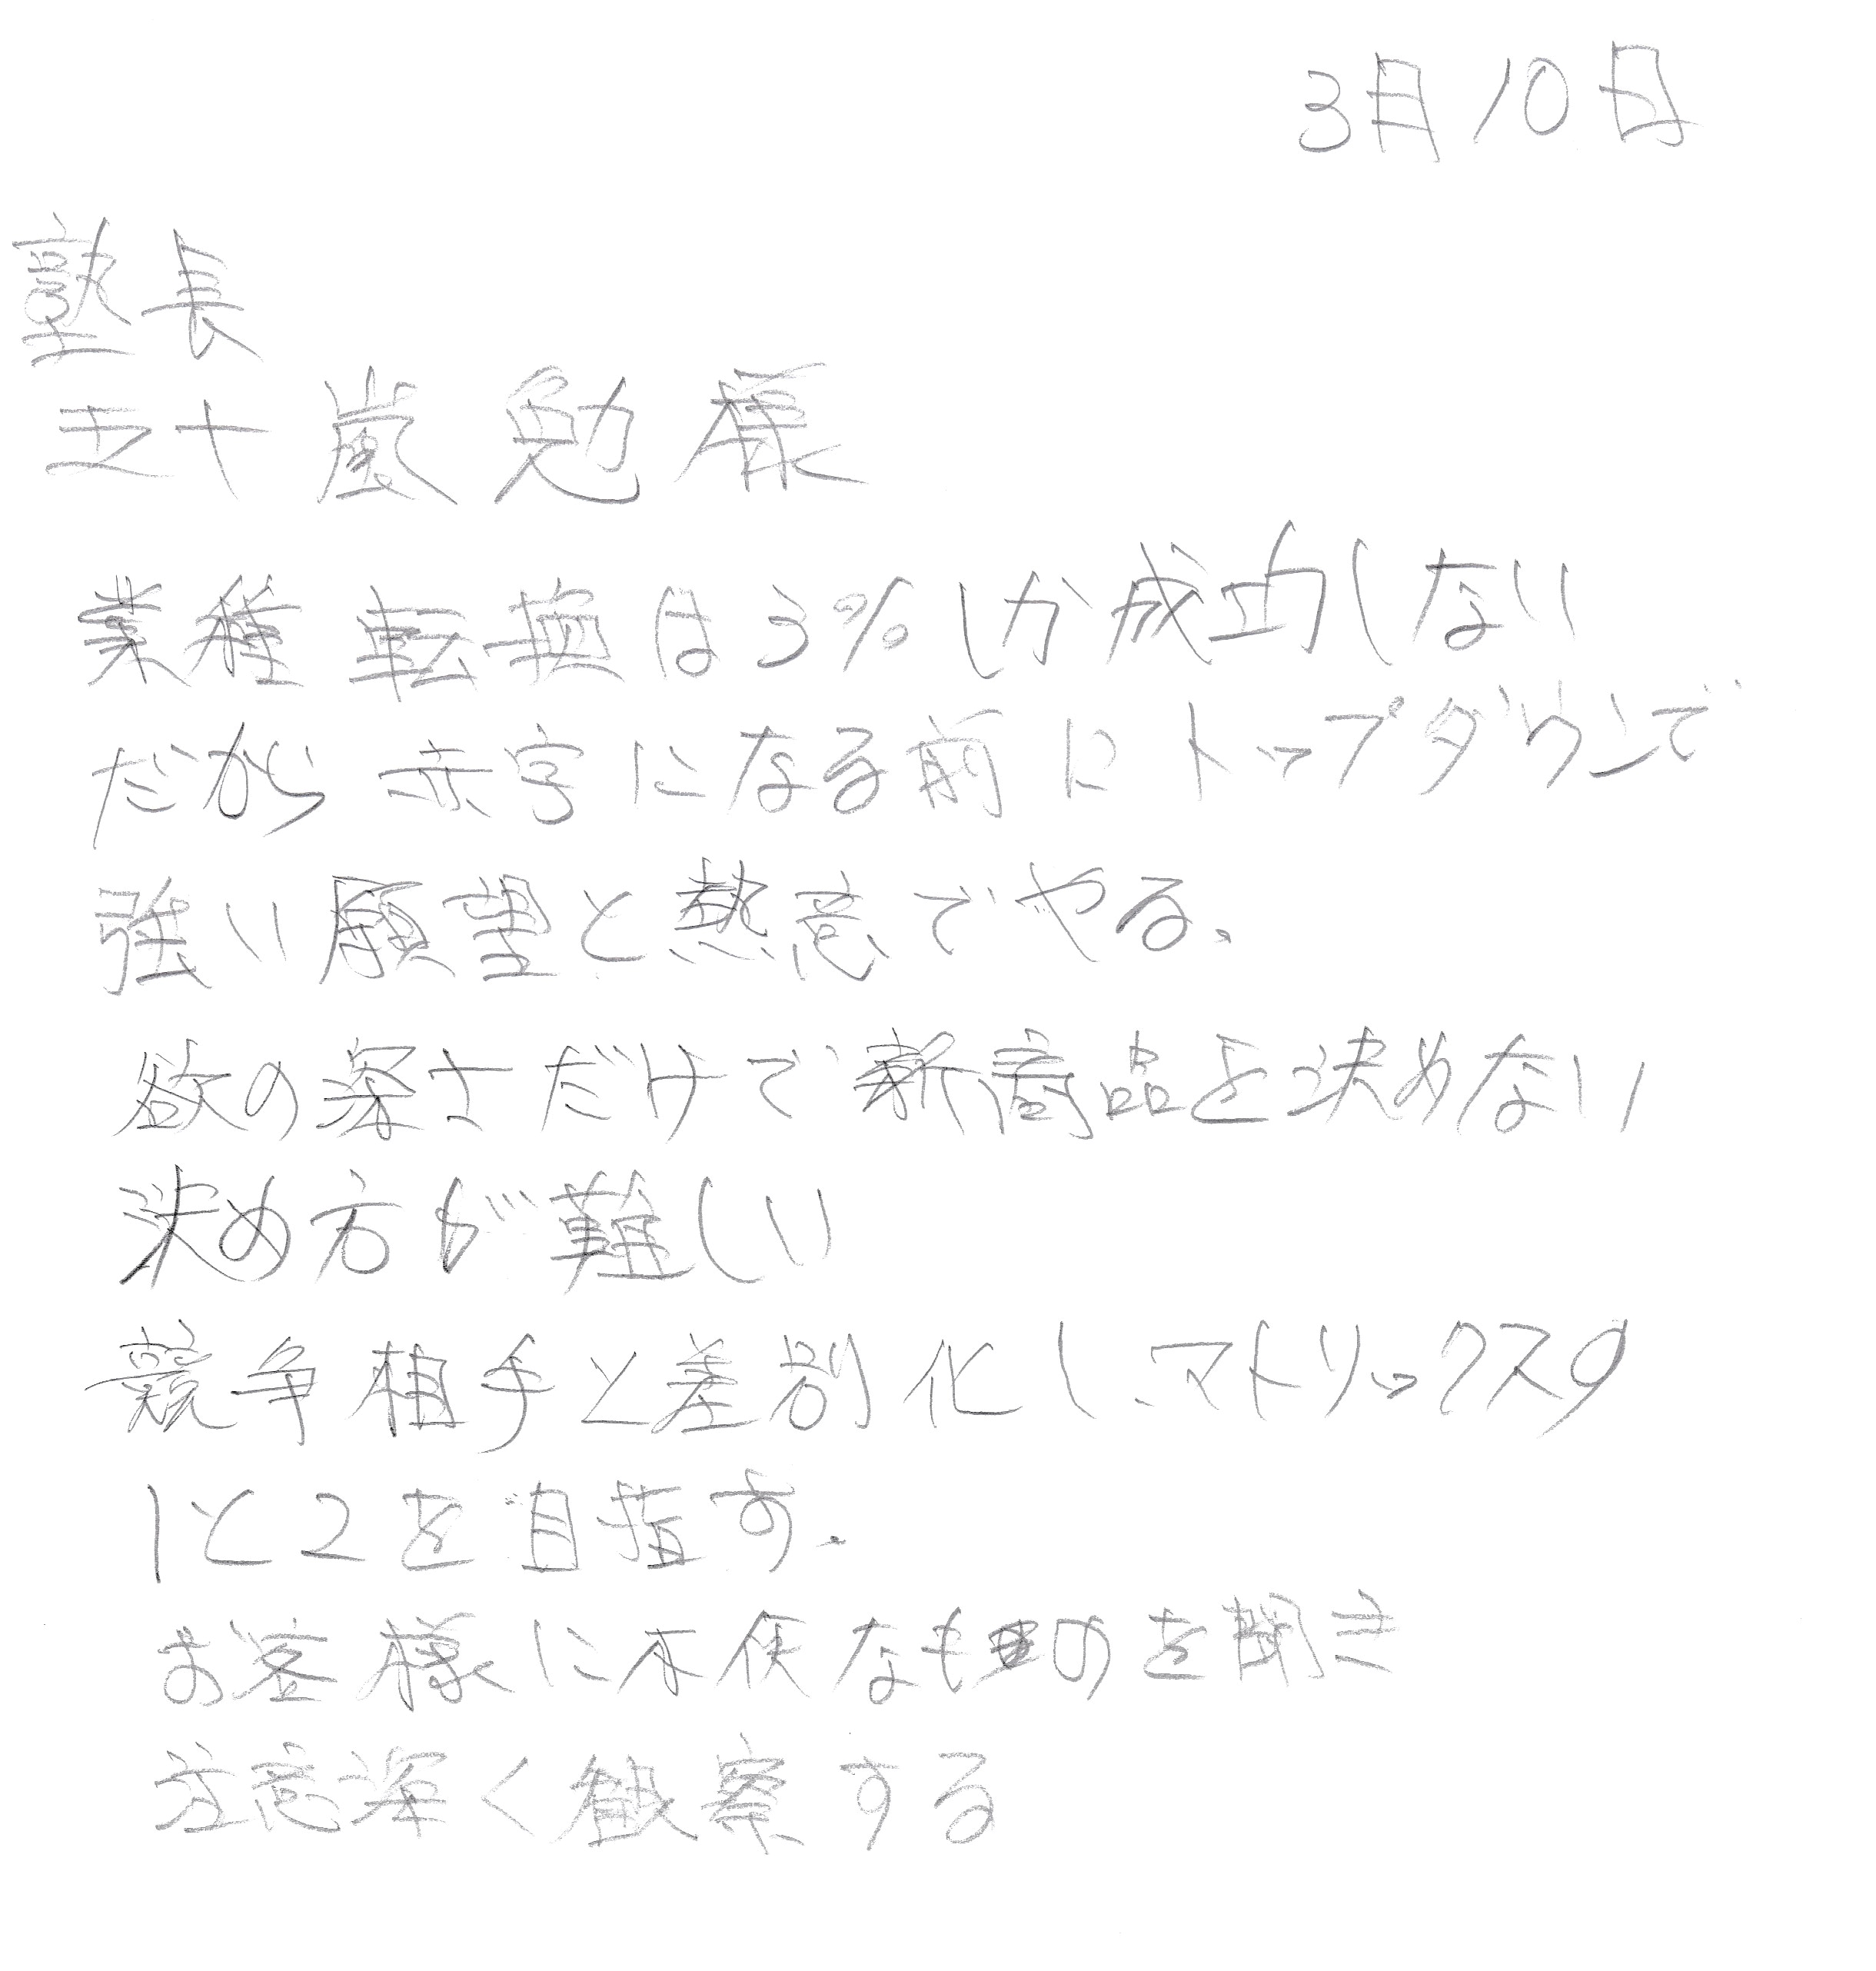 3月10日
塾長
五十嵐勉様
業種転換は3%しか成功しない
だから赤字になる前にトップダウンで
強い願望と熱意でやる。
欲の深さだけで新商品を決めない
決め方が難しい
競争相手と差別化し、マトリックスの
1と2を目指す。
お客様に不便なものを聞き
注意深く観察する